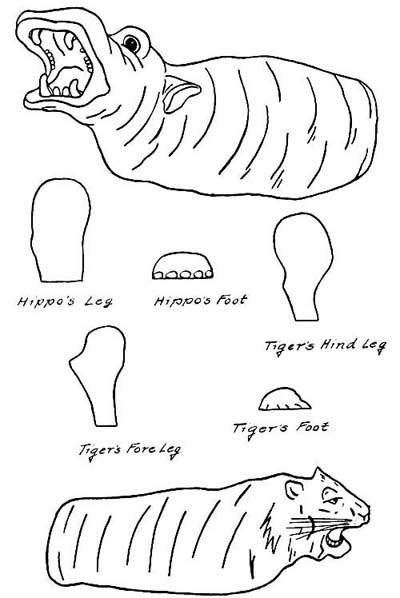 Hippo's Leg
Hippo's Foot
Tiger's Hind Leg
Tiger's Fore Leg
Tiger's Foot